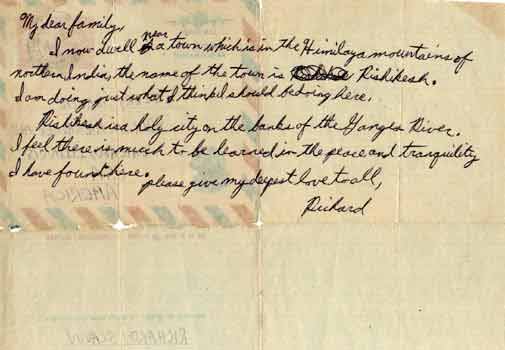 My dear family,
I now dwell near a town which is in the Himilaya mountains of
northern India, the name of the town is Rishikesh.
I am doing just what I think I should be doing here.
Rishikesh is a holy city on the banks of the Ganges River.
I feel there is much to be learned in the peace and tranquility
I have found here.
please give my deepest love to all,
Richard
AMERICA
RICHARD